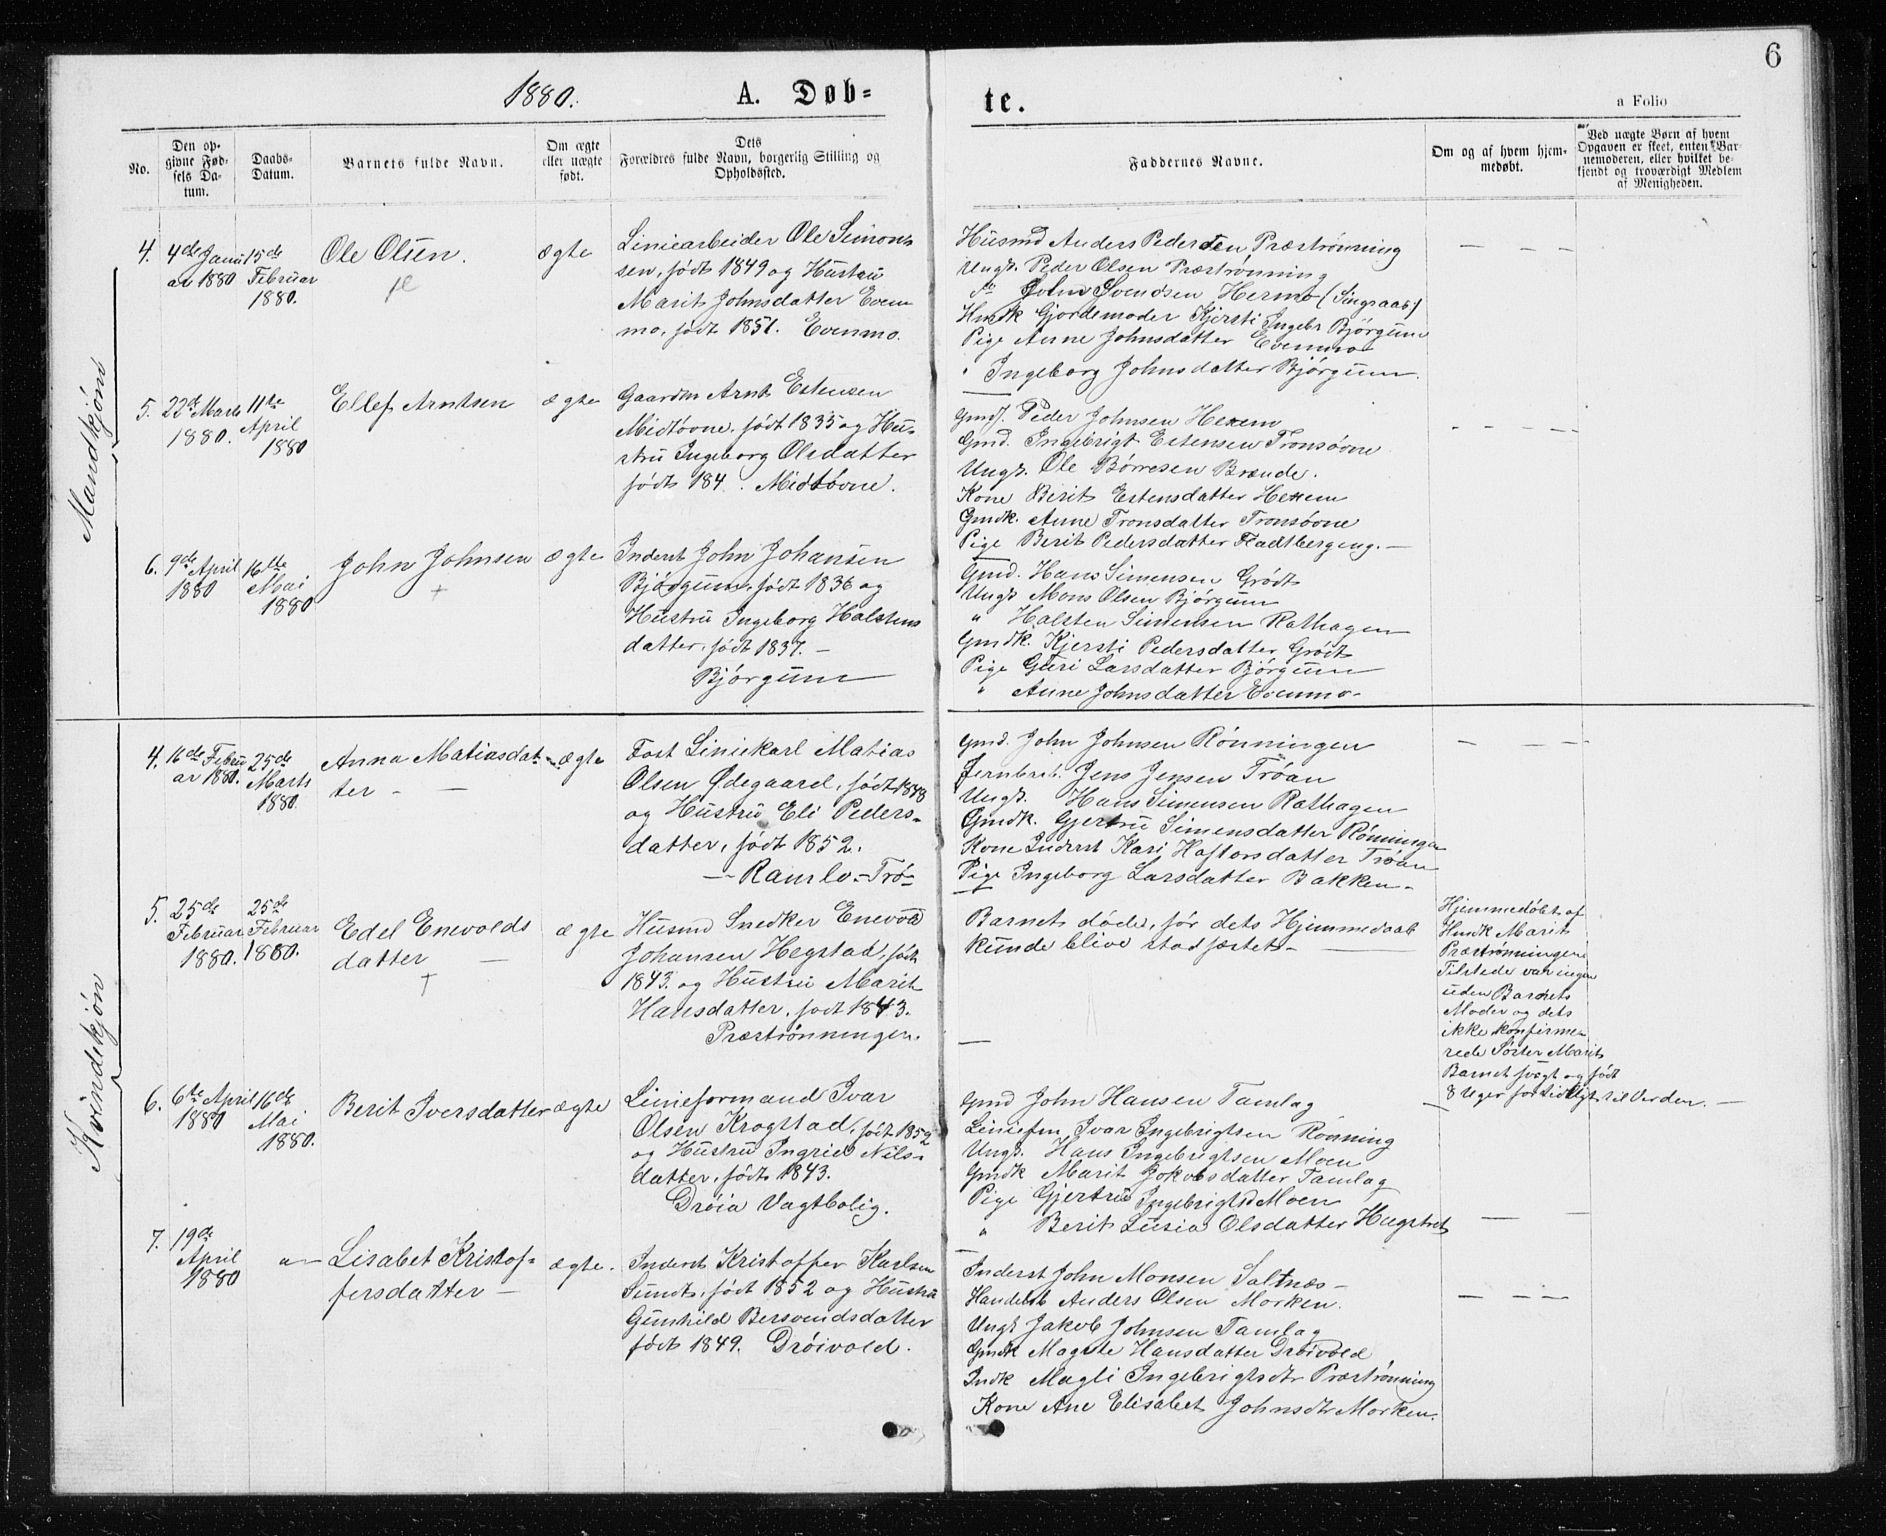 6
1880. A. Døb=
te. a Folio
No.
Den op-
givne Fød-
sels Da-
tum.
Daabs-
Datum.
Barnets fulde Navn.
Om ægte
eller uægte
født.
Dets
Forældres fulde Navn, borgerlig Stilling og
Opholdssted.
Faddernes Navne.
Om og af hvem hjem-
medøbt.
Ved uægte Børn af hvem
Opgaven er skeet, enten Bar-
nemoderen, eller hvilket be-
kjendt og troværdigt Medlem
af Menigheden.
Mandkjøn
4.
4de Janu
ar 1880
15de
Februar
1880.
Ole Olsen.
ægte
Liniearbeider Ole Simon-
sen, født 1849 og Hustru
Marit Johnsdatter Even
mo, født 1851. Evenmo.
Husmd Anders Pedersen Præstrønning
Ungk. Peder Olsen Præstrønning
do John Svendsen Hermo (Singsaas)
Hmdk Gjordemoder Kjersti Ingebr Bjørgum
Pige Anne Johnsdatter Evenmo
" Ingeborg Johnsdatter Bjørgum.
5.
22de Marts
1880.
11te
April
1880
Ellef Arntsen
ægte
Gaardm Arnt Estensen
Midtøvne, født 1835 og Hu-
stru Ingeborg Olsdatter
født 184 . Midtøvne.
Gmd. Peder Johnsen Hexem
Gmd. Ingebrigt Estensen Tronsøvne
Ungk. Ole Børresen Brænde.
Kone Berit Estensdatter Hexem
Gmdk. Anne Tronsdatter Tronsøvne
Pige Berit Pedersdatter Fladtbergeng. —
6.
9de April
1880
16tte
Mai
1880
John Johnsen
+
ægte
Inderst John Johansen
Bjørgum, født 1836 og
Hustru Ingeborg Halstens
datter, født 1837. —
Bjørgum
Gmd. Hans Simensen Grødt
Ungk Mons Olsen Bjørgum
" Halsten Simensen Rathagen
Gmdk. Kjersti Pedersdatter Grødt
Pige Guri Larsdatter Bjørgum
" Anne Johnsdatter Evenmo-
Kvindekjøn
4.
16de Febru
ar 1880.
25de
Marts
1880.
Anna Matiasdat-
ter - —
ægte
Fast Liniekarl Matias
Olsen Ødegaard, født 1848
og Hustru Eli Peders-
datter, født 1852.
— Ramlo-Trø-
Gmd. John Johnsen Rønningen
Jernbarb. Jens Jensen Trøan
Ungk. Hans Simensen Rathagen
Gmdk. Gjertru Simensdatter Rønningen
Kone Inderst Kari Haftorsdatter Trøan
Pige Ingeborg Larsdatter Bakken-
5.
25de
Februar
1880.
25de
Februar
1880.
Edel Enevolds
datter —
+
ægte
Husmd Snedker Enevold
Johansen Hegstad, født
1843. og Hustru Marit
Hansdatter, født 1843.
Præstrønningen.
Barnet døde, før dets Hjemmedaab
kunde blive stadfæstet- —
Hjemmedøbt af
Hmdk Marit
Præstrønningen
Tilstede var ingen
uden Barnets
Moder og dets
ikke konfirme-
rede Søster Marit
Barnet svagt og født
8 Uger for tidligt til Verden. —
6.
6te April
1880
16de
Mai
1880.
Berit Iversdatter
ægte
Linieformand Ivar
Olsen Krogstad, født 1852
og Hustru Ingrid Nils-
datter, født 1843.
Drøia Vagtbolig.
Gmd John Hansen Tamlag
Liniefm Ivar Ingebrigtsen Rønning
Ungk. Hans Ingebrigtsen Moen
Gmdk Marit Jokobsdatter Tamlag
Pige Gjertru IngebrigtsD Moen
" Berit Lusia Olsdatter Hugstret
7.
19de
April
1880
Lisabet Kristof-
fersdatter —
ægte.
Inderst Kristoffer Karlsen
Sundt, født 1852 og Hustru
Gunhild Bersvendsdatter
født 1849. Drøivold.
Inderst John Monsen Saltnæs —
Handelsb Anders Olsen Morken.
Ungk Jakob Johnsen Tamlag
Gmdk Magnhild Hansdatter Drøivold
Indk Magli Ingebrigtsdtr Præstrønning
Kone Ane Elisabet Johnsdtr Morken.